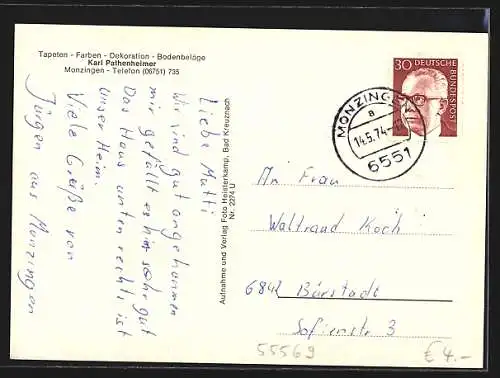 Tapeten - Farben - Dekoration - Bodenbeläge
Karl Pathenheimer
Monzingen - Telefon (06751) 735
Liebe Mutti
Wir sind gut angekommen
mir gefällt es hier sehr gut
Das Haus unten rechts ist
unser Heim.
Viele Grüße von
Jürgen aus Monzingen
Aufnahme und Verlag Foto Heisterkamp, Bad Kreuznach
Nr. 2274 U
30 DEUTSCHE
BUNDESPOST
MONZINGEN
a
14.5.74
6551
An Frau
Waltraud Koch
6842 Bürstadt
Sofienstr. 3
55569
€ 4.-